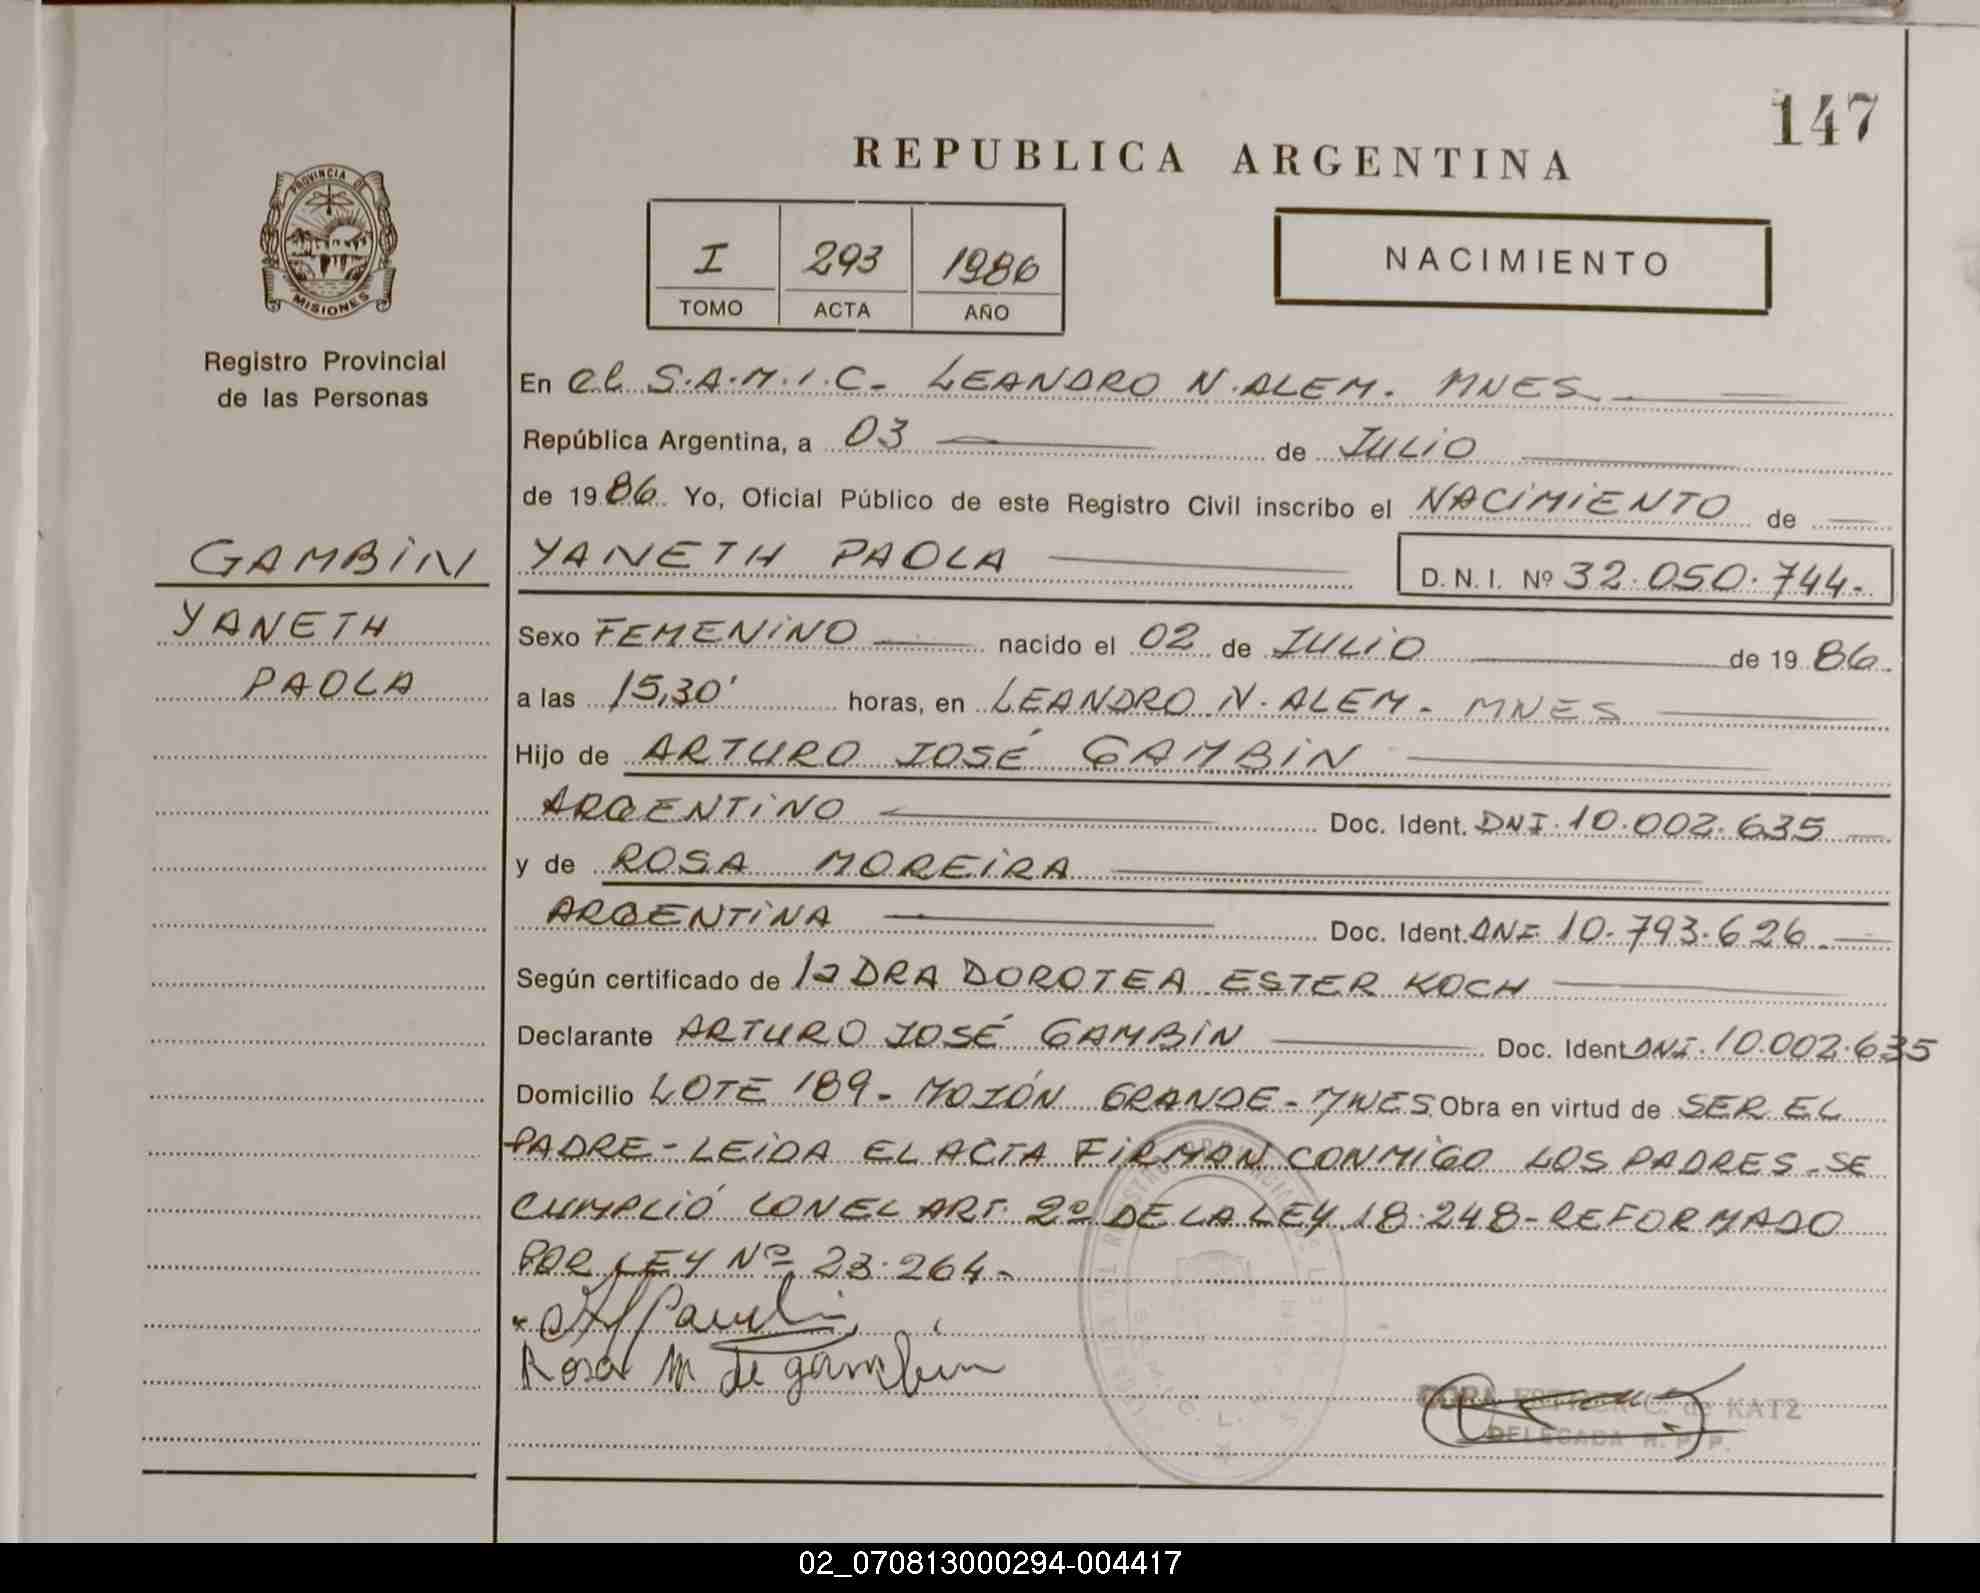 147
REPUBLICA ARGENTINA
PROVINCIA DE
MISIONES
Registro Provincial
de las Personas
I 293 1986
TOMO ACTA AÑO
NACIMIENTO
En el S.A.M.I.C. - LEANDRO N. ALEM. MNES
República Argentina, a 03 de JULIO
de 1986. Yo, Oficial Público de este Registro Civil inscribo el NACIMIENTO de
GAMBIN
YANETH PAOLA
D. N. I. Nº 32.050.744.-
YANETH
PAOLA
Sexo FEMENINO nacido el 02 de JULIO de 1986.
a las 15,30' horas, en LEANDRO N. ALEM - MNES
Hijo de ARTURO JOSÉ GAMBIN
ARGENTINO Doc. Ident. DNI. 10.002.635
y de ROSA MOREIRA
ARGENTINA Doc. Ident. DNI 10.793.626
Según certificado de la DRA DOROTEA ESTER KOCH
Declarante ARTURO JOSÉ GAMBIN Doc. Ident. DNI. 10.002.635
Domicilio LOTE 189 - MOJÓN GRANDE - MNES Obra en virtud de SER EL
PADRE - LEIDA EL ACTA FIRMAN CONMIGO LOS PADRES - SE
CUMPLIÓ CON EL ART. 2º DE LA LEY 18.248 - REFORMADO
POR LEY Nº 23.264.-
Rosa M de gambin
C. de KATZ
DELEGADA R. P. P.
02_070813000294-004417